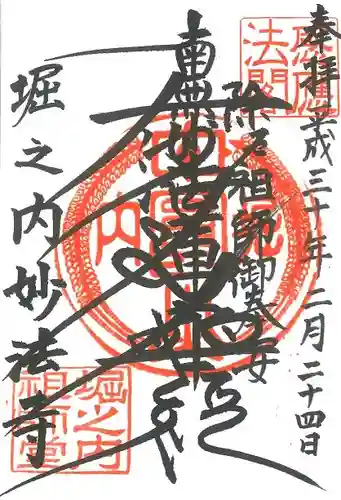 奉拝
平成三十年二月二十四日
除厄祖師御奉安
南無妙法蓮華経
堀之内妙法寺
感應
法閣
堀之内
祖師堂